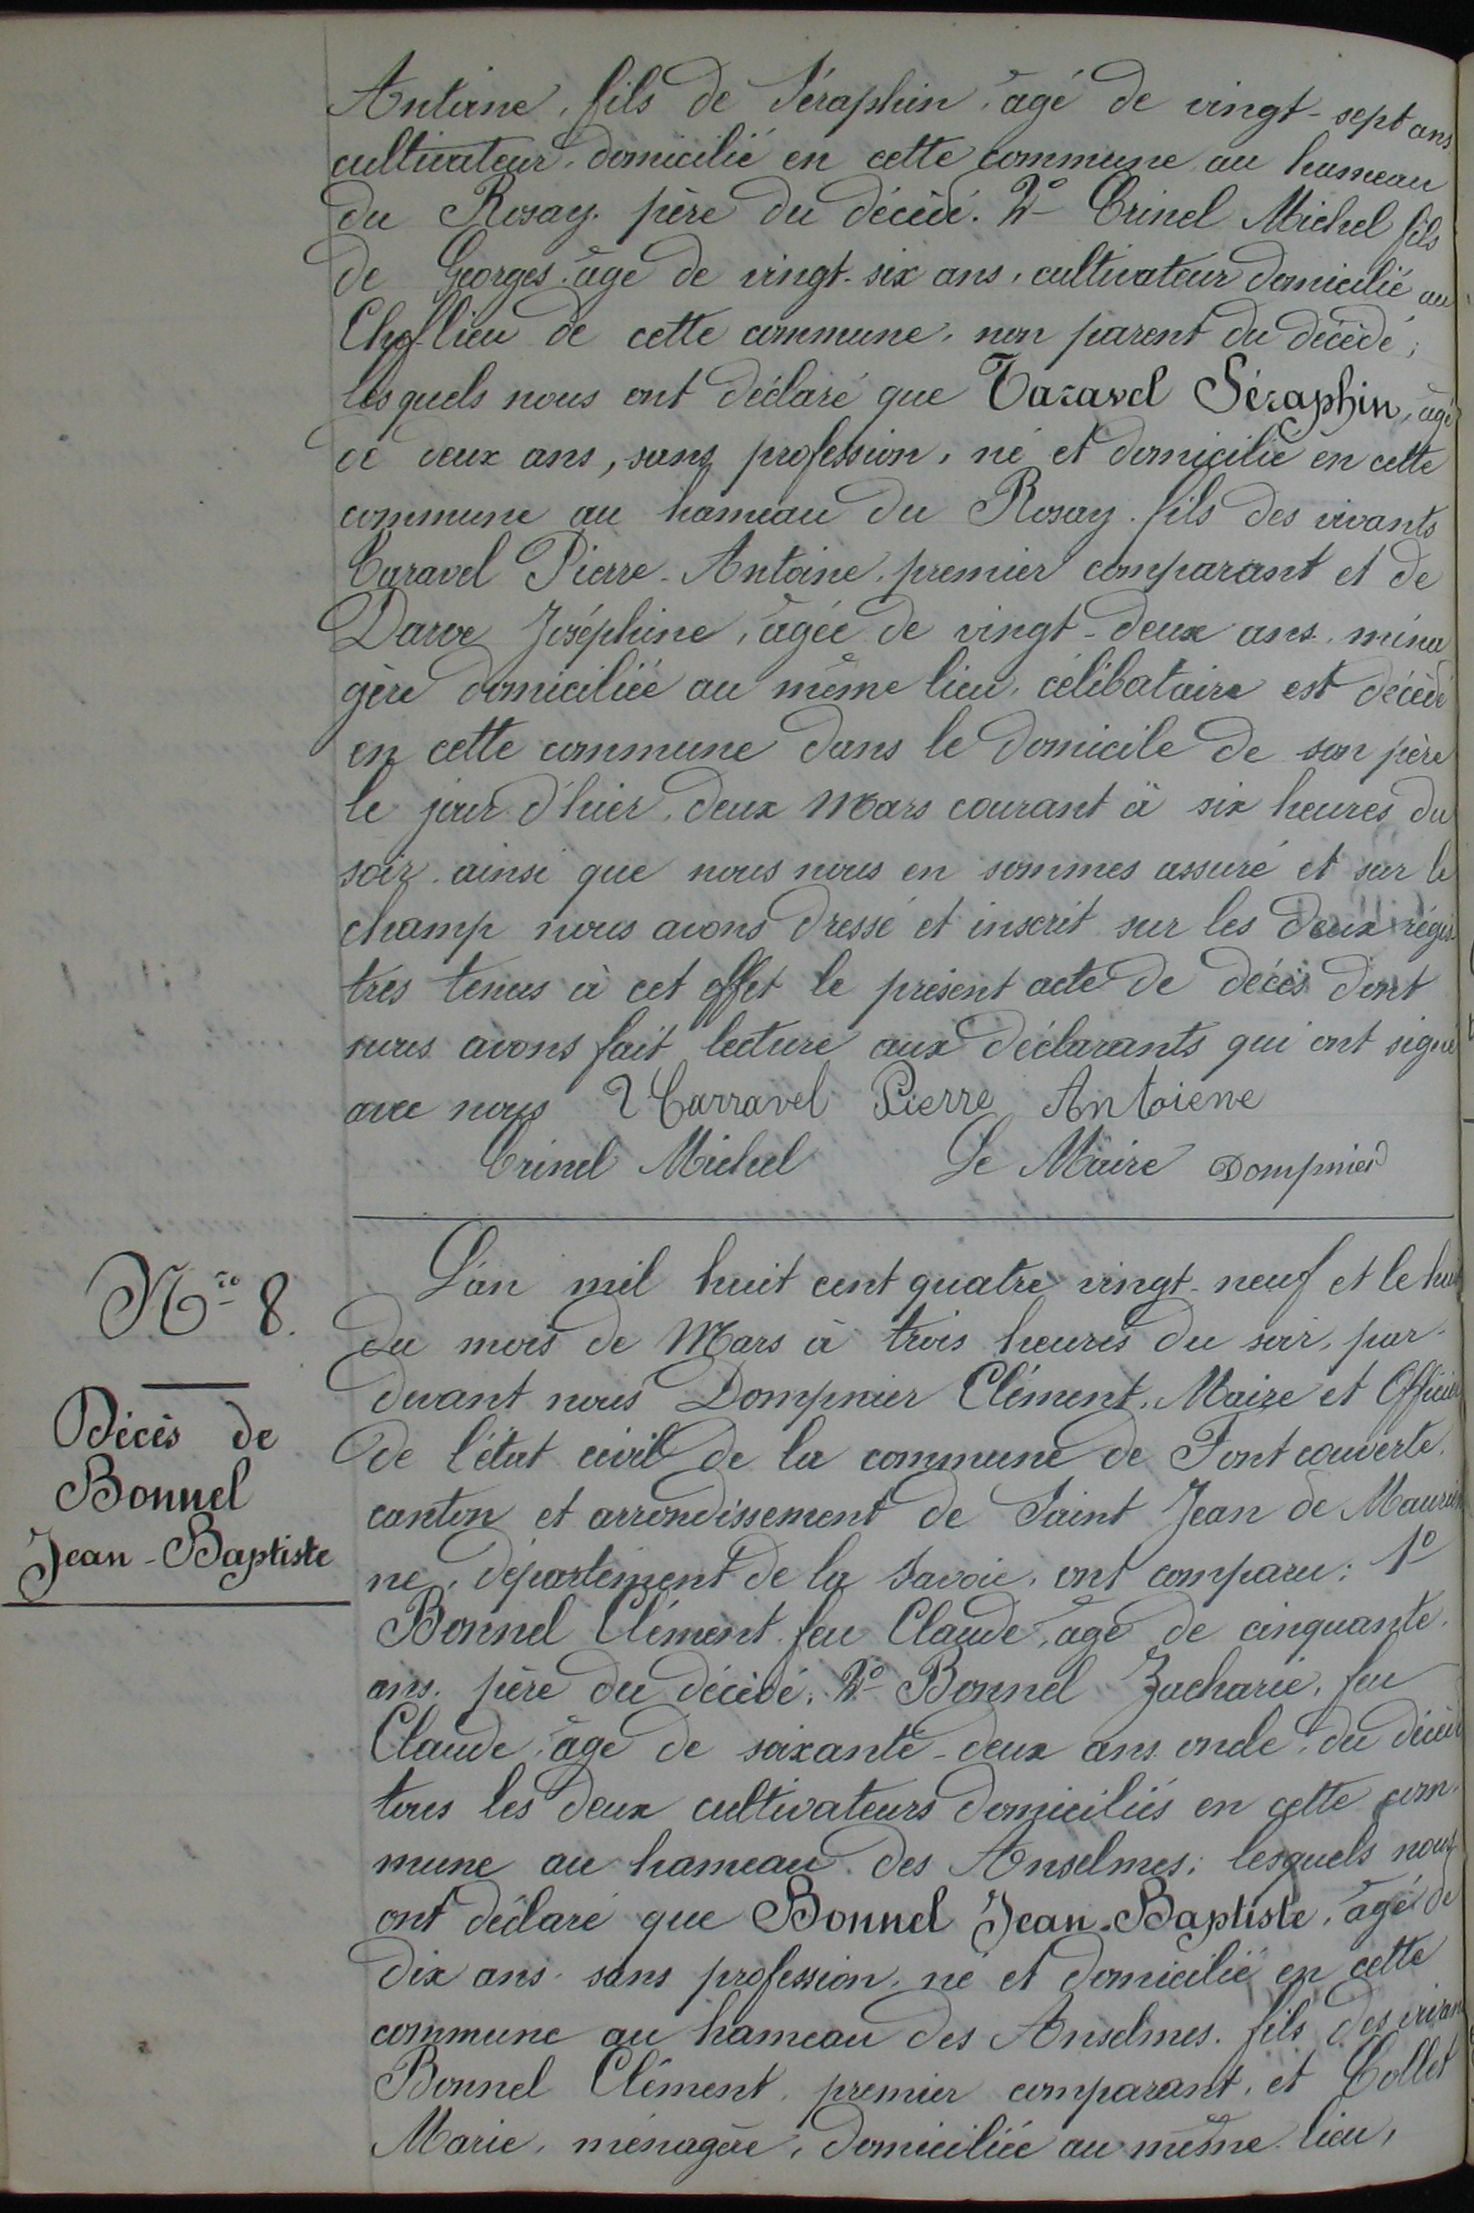 Antoine, fils de Séraphin, âgé de vingt-sept ans
cultivateur, domicilié en cette commune au hameau
du Rosay, père du décédé. 2º Crinel Michel fils
de Georges âgé de vingt-six ans, cultivateur domicilié au
Chef-lieu de cette commune, non parent du décédé;
lesquels nous ont déclaré que Taravel Séraphin, âgé
de deux ans, sans profession, né et domicilié en cette
commune au hameau du Rosay, fils des vivants
Taravel Pierre-Antoine, premier comparant et de
Darve Joséphine, âgée de vingt-deux ans, ména
gère domiciliée au même lieu, célibataire est décédé
en cette commune dans le domicile de son père
le jour d'hier, deux Mars courant à six heures du
soir, ainsi que nous nous en sommes assuré et sur le
champ nous avons dressé et inscrit sur les deux régis-
tres tenus à cet effet le présent acte de décès dont
nous avons fait lecture aux déclarants qui ont signé
avec nous Tarravel Pierre Antoiene
Crinel Michel Le Maire Dompnier
Nro 8.
Décès de
Bonnel
Jean-Baptiste
L'an mil huit cent quatre vingt-neuf et le huit
du mois de Mars à trois heures du soir, par-
devant nous Dompnier Clément, Maire et Officier
de l'état civil de la commune de Fontcouverte,
canton et arrondissement de Saint Jean de Maurien
ne, département de la Savoie, ont comparu: 1º
Bonnel Clément feu Claude, âgé de cinquante
ans, père du décédé; 2º Bonnel Zacharie, feu
Claude, âgé de soixante-deux ans oncle du décédé
tous les deux cultivateurs domiciliés en cette com-
mune au hameau des Anselmes; lesquels nous
ont déclaré que Bonnel Jean-Baptiste, âgé de
dix ans, sans profession, né et domicilié en cette
commune au hameau des Anselmes, fils des vivan
Bonnel Clément, premier comparant, et Collet
Marie, ménagère, domiciliée au même lieu,